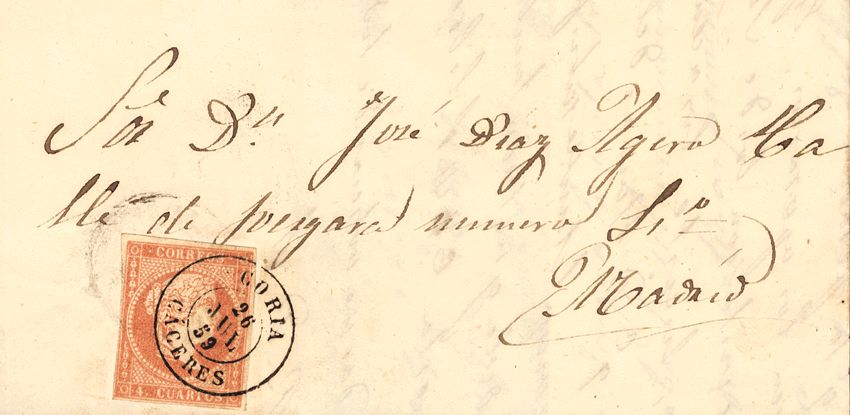 Sor Dn José Diaz Agero Ca
lle de vergara numero
Madrid
CORREOS
4 CUARTOS
CORIA
26
JUL
59
CACERES